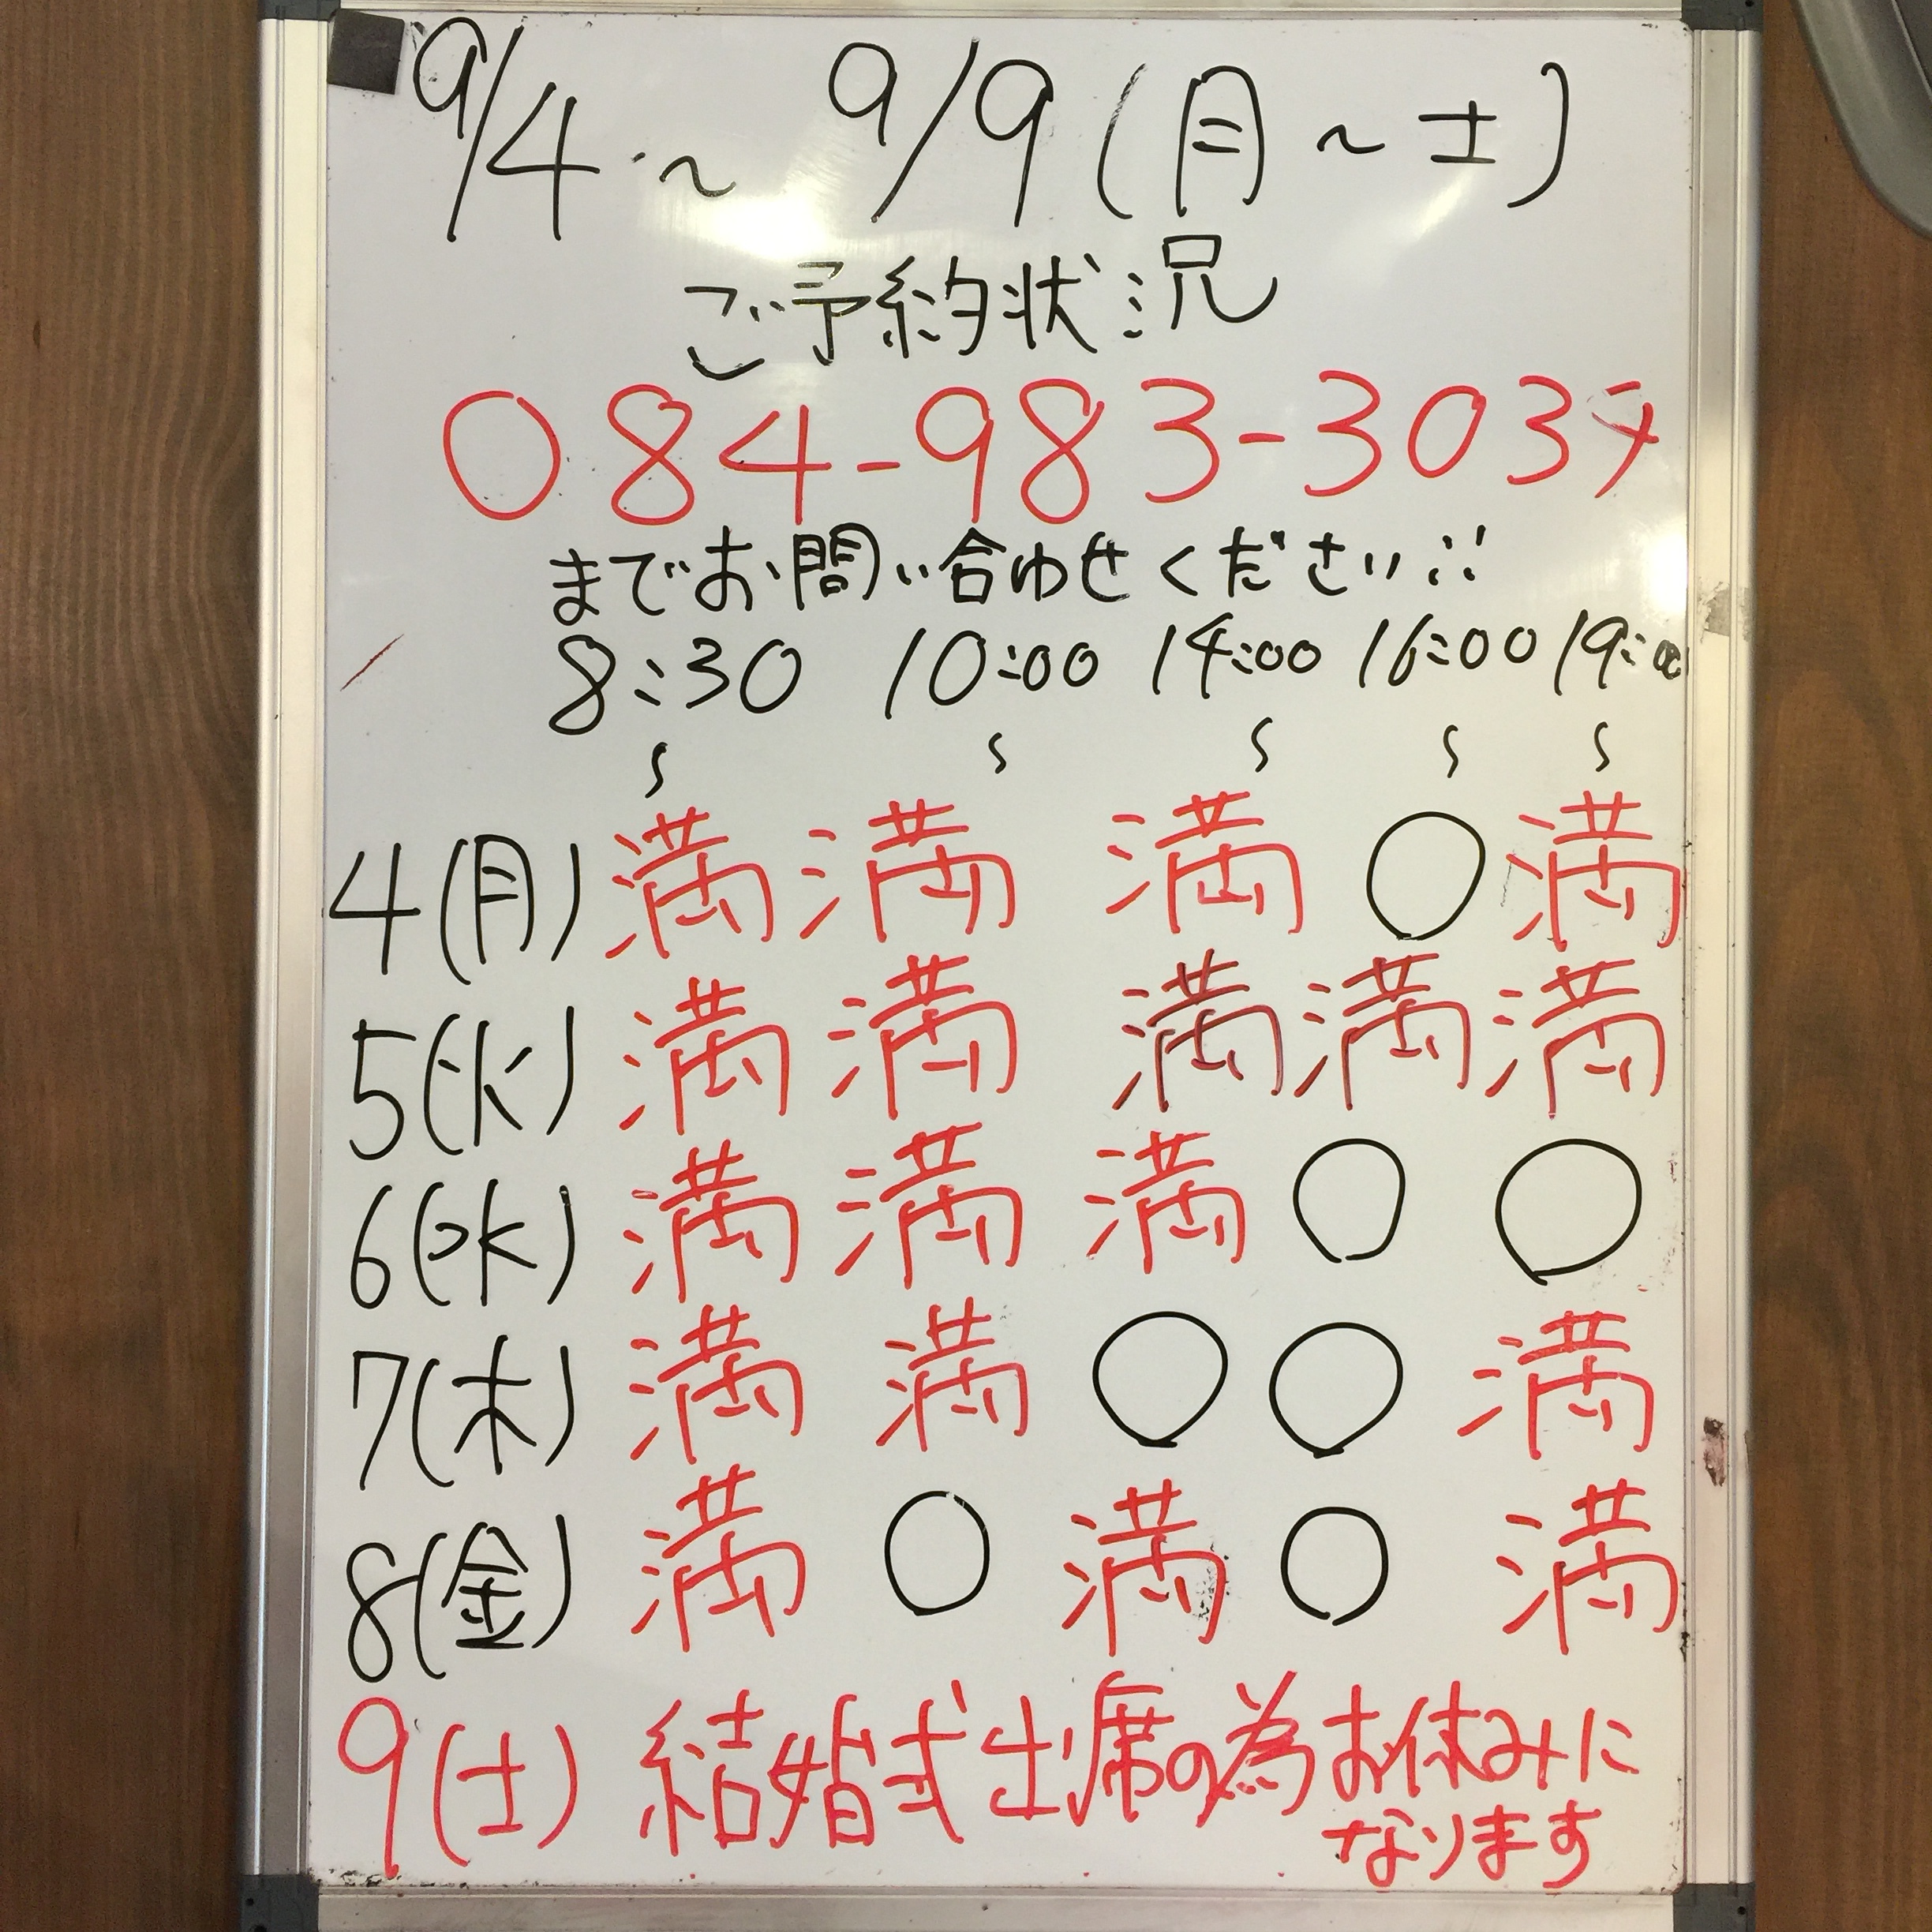 9/4～9/9(月～土)
ご予約状況
084-983-303
までお問い合わせください!!
8:30 10:00 14:00 16:00 19:00
～ ～ ～ ～ ～
4(月) 満 満 満 ○ 満
5(火) 満 満 満 満 満
6(水) 満 満 満 ○ ○
7(木) 満 満 ○ ○ 満
8(金) 満 ○ 満 ○ 満
9(土) 結婚式出席の為お休みに
なります